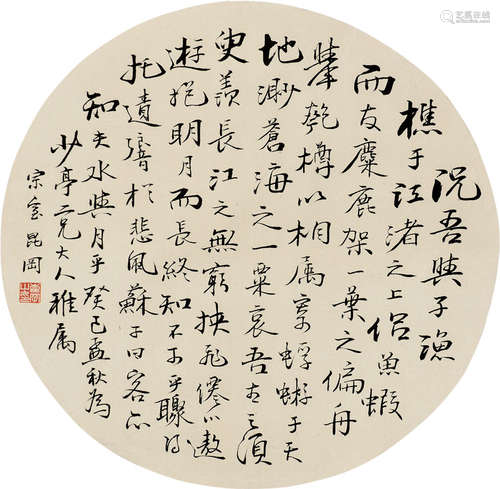 况吾與子漁
樵于江渚之上侣魚蝦
而友麋鹿架一葉之偏舟
舉匏樽以相属寄蜉蝣于天
地渺蒼海之一粟哀吾生之須
臾羨長江之無窮挾飛僊以遨
遊抱明月而長終知不可乎驟得
托遺響於悲風蘇子曰客亦
知夫水與月乎癸巳孟秋為
少亭二兄大人雅属
宗室昆岡
艺狐在线